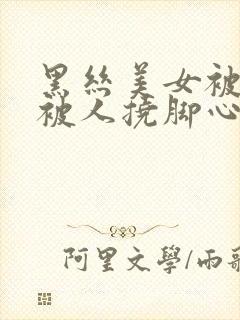 黑丝美女被
被人挠脚心
阿里文學/雨